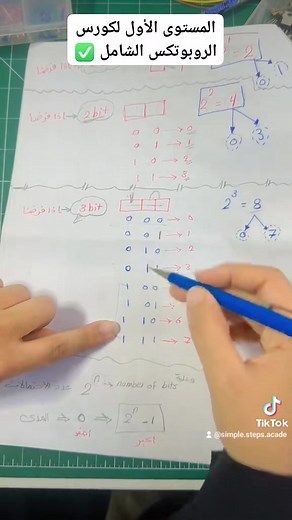 المستوى الأول لكورس
الروبوتكس الشامل ✅
2 = 2
0
2 bit
2ⁿ = 4
0 0 → 0
0 1 → 1
1 0 → 2
1 1 → 3
0 3
3 bit
2³ = 8
0 0 0 → 0
0 0 1 → 1
0 1 0 → 2
0 1
0 7
1 0 0
1 0 1
1 1 0 → 6
1 1 1 → 7
2ⁿ → number of bits
0
2ⁿ - 1
TikTok
@simple.steps.acade